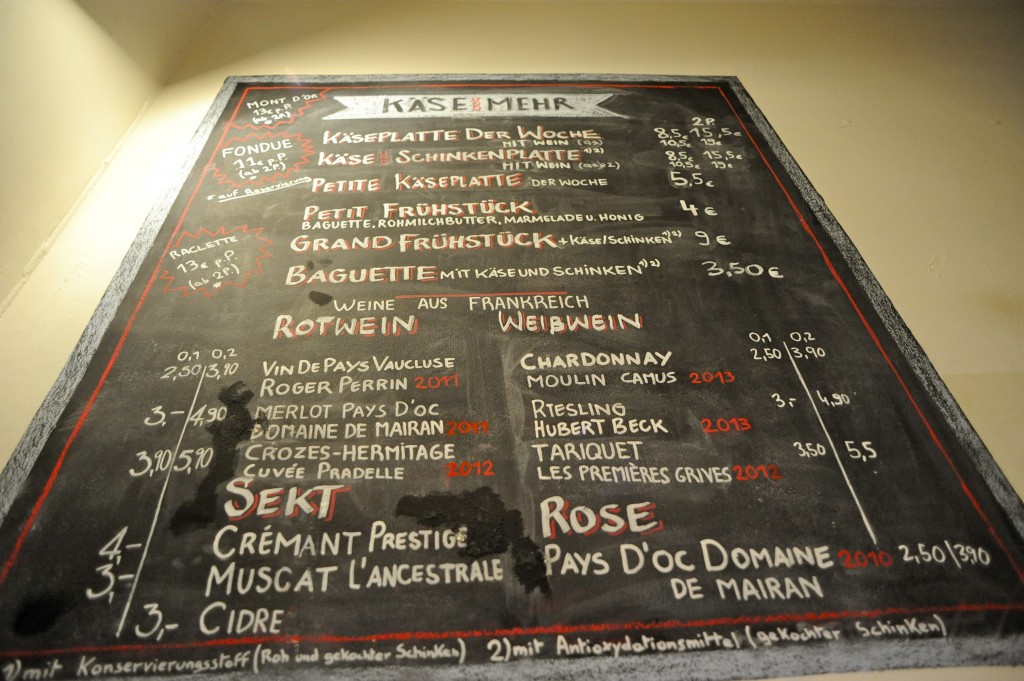 KÄSE UND MEHR
MONT D'OR
13€ p.P.
(ab 2P.)
FONDUE
11€ p.P.
(ab 2P.)
* auf Reservierung
RACLETTE
13€ p.P.
(ab 2P.)
*
2P.
KÄSEPLATTE DER WOCHE 8,5€ 15,5€
MIT WEIN 10,5€ 19€
KÄSE UND SCHINKENPLATTE 1)2) 8,5€ 15,5€
MIT WEIN 10,5€ 19€
PETITE KÄSEPLATTE DER WOCHE 5,5€
PETIT FRÜHSTÜCK 4€
BAGUETTE, ROHMILCHBUTTER, MARMELADE U. HONIG
GRAND FRÜHSTÜCK + KÄSE/SCHINKEN 1)2) 9€
BAGUETTE MIT KÄSE UND SCHINKEN 1)2) 3,50€
WEINE AUS FRANKREICH
ROTWEIN
0,1 0,2
2,50 3,90 VIN DE PAYS VAUCLUSE
ROGER PERRIN 2011
3,- 4,90 MERLOT PAYS D'OC
DOMAINE DE MAIRAN 2011
3,90 5,90 CROZES-HERMITAGE
CUVÉE PRADELLE 2012
SEKT
4,- CRÉMANT PRESTIGE
3,- MUSCAT L'ANCESTRALE
3,- CIDRE
WEIßWEIN
0,1 0,2
CHARDONNAY 2,50 3,90
MOULIN CAMUS 2013
RIESLING 3,- 4,90
HUBERT BECK 2013
TARIQUET 3,50 5,5
LES PREMIÈRES GRIVES 2012
ROSE
PAYS D'OC DOMAINE 2010 2,50/3,90
DE MAIRAN
1) mit Konservierungsstoff (Roh und gekochter Schinken) 2) mit Antioxydationsmittel (gekochter Schinken)